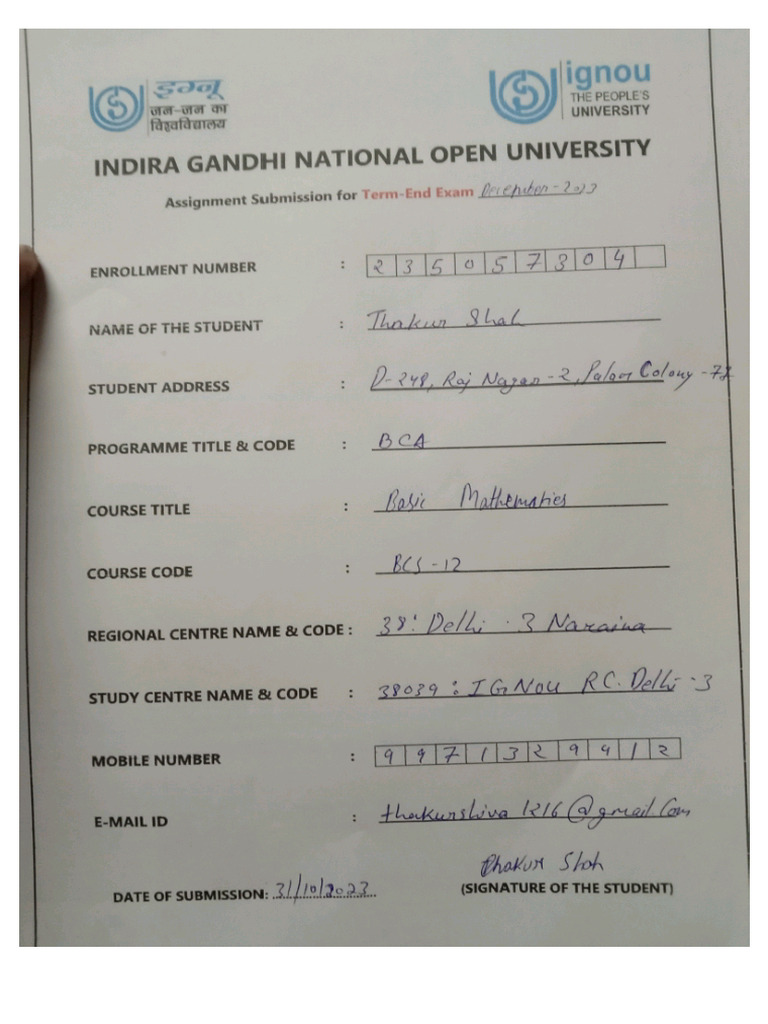 इग्नू
जन-जन का
विश्वविद्यालय
ignou
THE PEOPLE'S
UNIVERSITY
INDIRA GANDHI NATIONAL OPEN UNIVERSITY
Assignment Submission for Term-End Exam December-2023
ENROLLMENT NUMBER : 2 3 5 0 5 7 3 0 4
NAME OF THE STUDENT : Thakur Shah
STUDENT ADDRESS : D-248, Raj Nagar-2, Palam Colony-77
PROGRAMME TITLE & CODE : BCA
COURSE TITLE : Basic Mathematics
COURSE CODE : BCS-12
REGIONAL CENTRE NAME & CODE : 38: Delhi-3 Naraina
STUDY CENTRE NAME & CODE : 38039: IGNOU RC. Delhi-3
MOBILE NUMBER : 9 9 7 1 3 2 9 4 1 2
E-MAIL ID : thakurshiva1216@gmail.com
Thakur Shah
DATE OF SUBMISSION: 31/10/2023 (SIGNATURE OF THE STUDENT)